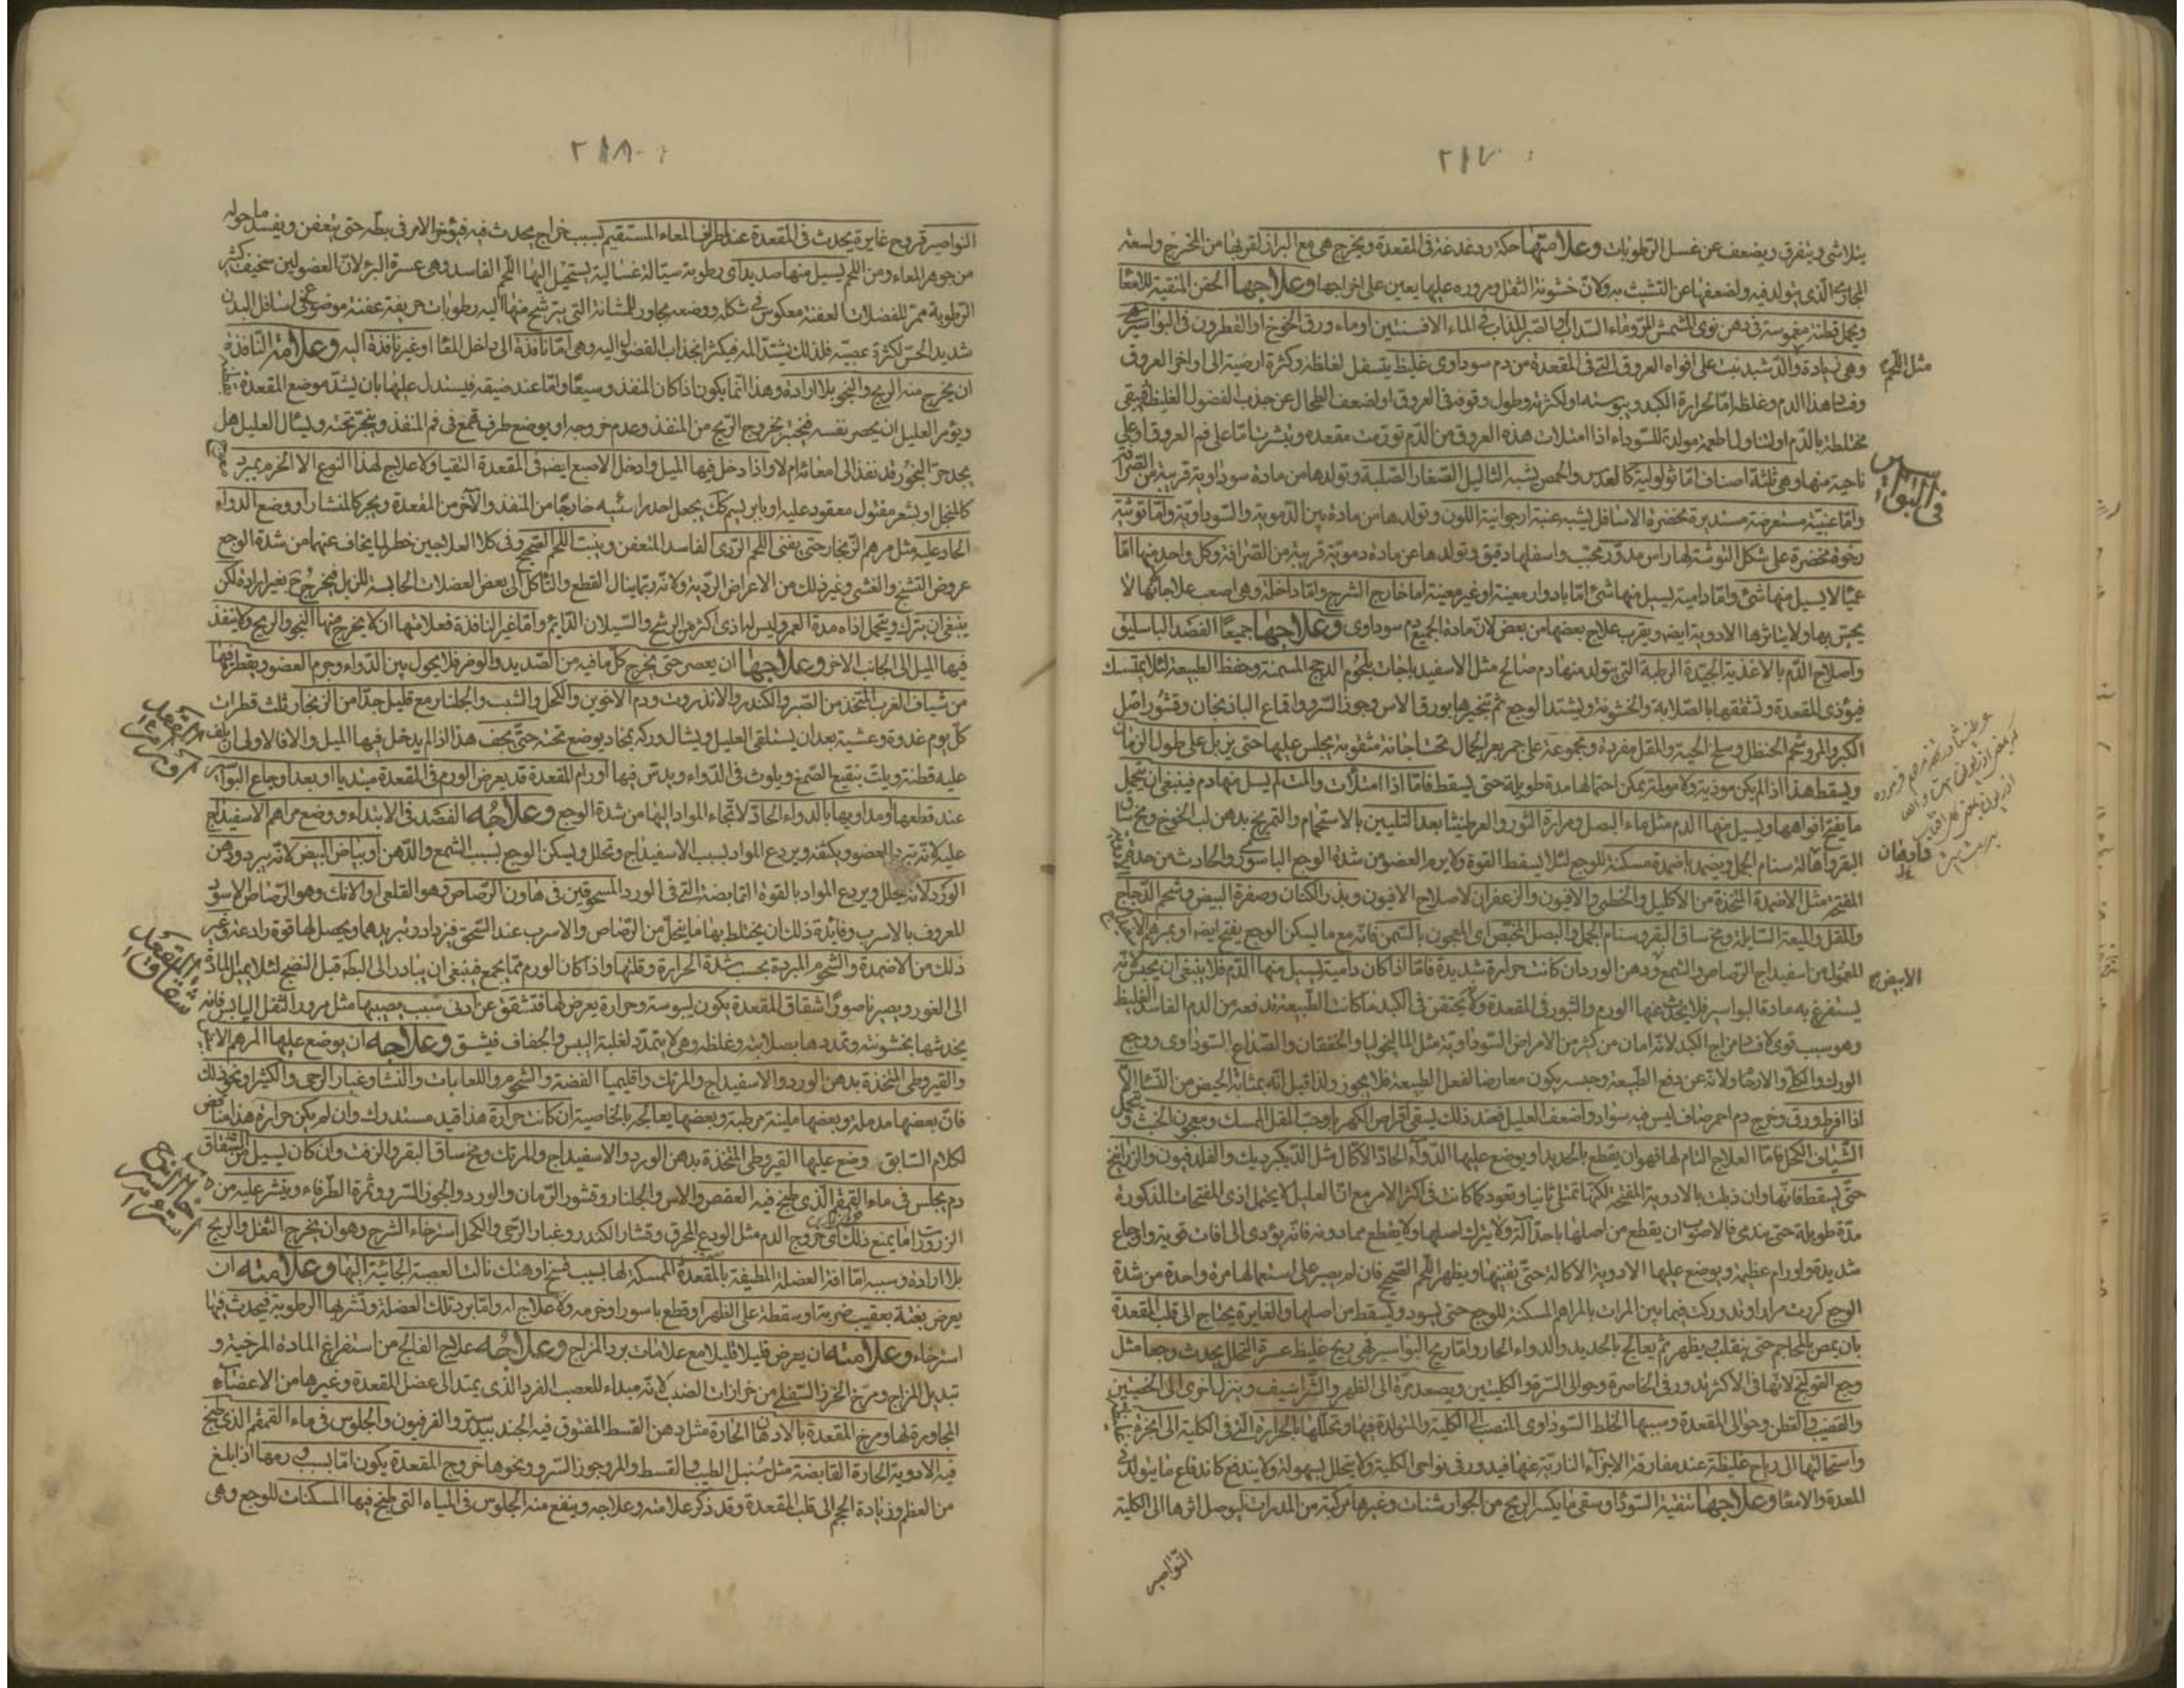 ٢١٧
يتلاشى ويتفرق ويضعف عن غسل الرطوبات وعلامتها حكة ودغدغة في المقعدة ويخرج هي مع البراز لقربها من المخرج ولسعة
المجاري الذي يتولد فيه ولضعفها عن التشبث به ولان خشونة الثفل ومروره عليها يعين على اخراجها وعلاجها الحقن المنقية للامعا
ويحمل قطنة مغموسة في دهن نوى المشمش المر وماء السداب والصبر المذاب في الماء الافسنتين او ماء ورق الخوخ او القطرون في البواسير
وهي زيادة تنبت على افواه العروق التي في المقعدة من دم سوداوي غليظ يتسفل لغلظه وكثرة ارضيته الى اواخر العروق
مثل اللحم
وفساد هذا الدم وغلظه اما لحرارة الكبد ويبوسته او لكثرته وطول وقوفه في العروق او لضعف الطحال عن جذب الفضول الغليظ فيبقى
مختلطة بالدم او لتناول اطعمة مولدة للسوداء اذا امتلات هذه العروق من الدم تورمت مقعده وبثرت اما على فم العروق او على
في البواسير
ناحية منها وهي ثلثة اصناف اما ثولولية كالعدس والحمص يشبه الثاليل الصغار الصلبة وتولدها من مادة سوداوية قريبة من الصرافة
واما عنبية مستعرضة مستديرة مخضرة الاسافل يشبه عنبة ارجوانية اللون وتولدها من مادة بين الدموية والسوداوية واما توثية
رخوة مخضرة على شكل التوثة لها راس مدور محبب واسفلها دقيق وتولدها عن مادة دموية قريبة من الصرافة وكل واحد منها اما
عميا لا يسيل منها شئ واما دامية يسيل منها شئ اما بادوار معينة او غير معينة اما خارج الشرج واما داخله وهي اصعب علاجا لانها لا
يحس بها ولا ينالها الادوية ايضا ويقرب علاج بعضها من بعض لان مادة الجميع دم سوداوي وعلاجها جميعا الفصد الباسليق
واصلاح الدم بالاغذية الجيدة الرطبة التي يتولد منها دم صالح مثل الاسفيدباجات بلحوم الدجج المسمنة وحفظ الطبيعة لئلا يمسك
فيؤذي المقعدة وتشققها بالصلابة والخشونة ويشتد الوجع ثم تبخيرها بورق الاس وجوز السرو واقماع الباذنجان وقشور اصل
الكبر والمر وشحم الحنظل وسلخ الحية والمقل مفردة ومجموعة على جمر بعر الجمال تحت اجانة مثقوبة يجلس عليها حتى يذبل على طول الزمان
ويسقط هذا اذا لم يكن موذية ولا مولمة يمكن احتمالها مدة طويلة حتى يسقط فاما اذا امتلأت والمت لم يسل منها دم فينبغي ان يتحمل
ما يفتح افواهها ويسيل منها الدم مثل ماء البصل ومرارة الثور والعرطنيثا بعد التليين بالاستحمام والتمريخ بدهن لب الخوخ ومخ ساق
البقر واهالة سنام الجمل ويضمد باضمدة مسكنة للوجع لئلا يسقط القوة ولا يرم العضو من شدة الوجع الباسوري والحادث من حدة
المفتحة مثل الاضمدة المتخذة من الاكليل والخطمى والافيون والزعفران لاصلاح الافيون وبذر الكتان وصفرة البيض وشحم الدجاج
والمقل والميعة السايلة ومخ ساق البقر وسنام الجمل والبصل المخبص اي المعجون بالسمن فانه مع ما يسكن الوجع يفتح ايضا او بمرهم
المعمول من اسفيداج الرصاص والشمع ودهن الورد ان كانت حرارة شديدة فاما اذا كان دامية يسيل منها الدم فلا ينبغي ان يحبس لانه
الابيض
يستفرغ به مادة البواسير فلا يحدث عنها الورم والبثور في المقعدة ولا يحتقن في الكبد ما كانت الطبيعة تدفعه من الدم الفاسد الغليظ
وهو سبب قوى لافساد مزاج الكبد لانه امان من كثير من الامراض السوداوية مثل الماليخوليا والخفقان والصداع السوداوي ووجع
الورك والكلى والارحام ولانه عن دفع الطبيعة وحبسه يكون معارضا لفعل الطبيعة فلا يجوز ولذا قيل انه بمثابة الحيض من النساء الا
اذا افرط ورق وخرج دم احمر صاف ليس فيه سواد واضعف العليل فعند ذلك يسقى اقراص الكهربا وحب المقل الممسك ومعجون الخبث
الشياف الكحل فاما العلاج التام لها فهو ان يقطع بالحديد او يوضع عليها الدواء الحاد الاكال مثل الديك برديك والفلدفيون والزرانيخ
حتى يسقط فانها وان ذبلت بالادوية المفتحة لكنها تمتلى ثانيا وتعود كما كانت في اكثر الامر مع ان العليل لا يحتمل اذى المفتحات المذكورة
مدة طويلة حتى يندمى فالاصوب ان يقطع من اصلها باحد آلة ولا يترك اصلها ولا يقطع مما دونه فانه يؤدى الى افات قوية واوجاع
شديدة واورام عظيمة ويوضع عليها الادوية الاكالة حتى يفنيها ويظهر اللحم الصحيح فان لم يصبر على استعمالها مرة واحدة من شدة
الوجع كررت مرارا وتدوركت فيما بين المرات بالمراهم المسكنة للوجع حتى يسود ويسقط من اصلها والغايرة يحتاج الى قلب المقعدة
بان يمص بالمحاجم حتى ينقلب ويظهر ثم يعالج بالحديد والدواء الحار واما ريح البواسير فهي ريح غليظ عسرة التحلل يحدث وجعا مثل
وجع القولنج لانها في الاكثر تدور في الخاصرة وحوالى السرة والكليتين ويصعد مرة الى الظهر والشراسيف وينزل اخرى الى الخصيتين
والقضيب والقطن وحوالى المقعدة وسببها الخلط السوداوي المنصب الى الكلية والمتولدة فيها وتحللها بالحرارة التي في الكلية الى ابخرة
واستحالتها الى رياح غليظة عند مفارقة الاجزاء النارية عنها فيدور في نواحي الكلية ولا يتحلل بسهولة ولا يندفع كاندفاع ما يتولد في
المعدة والامعا وعلاجها تنقية السودا وسقى ما يكسر الريح من الجوارشنات وغيرها مركبة من المدرات ليوصل اثرها الى الكلية
النواصير
٢١٨
النواصير قروح غايرة يحدث في المقعدة عند اطراف المعاء المستقيم بسبب خراج يحدث فيه فيؤخر الامر في بطه حتى يتعفن ويفسد ما حوله
من جوهر المعاء ومن اللحم يسيل منها صديد اى رطوبة سيالة غسالية يستحيل اليها اللحم الفاسد وهي عسرة البرؤ لان العضو لين سخيف كثير
الرطوبة ممر للفضلات العفنة معكوس في شكله ووضعه مجاور للمثانة التي يترشح منها اليه رطوبات حريفة عفنة موضوع في اسافل البدن
شديد الحس لكثرة عصبه فلذلك يشتد المه فيكثر انجذاب الفضول اليه وهي اما نافذة الى داخل المعا او غير نافذة اليه وعلامة النافذة
ان يخرج منه الريح والنجو بلا ارادة وهذا انما يكون اذا كان المنفذ وسيعا واما عند ضيقه فيستدل عليها بان يشد موضع المقعدة
ويؤمر العليل ان يحصر نفسه فيختبر بخروج الريح من المنفذ وعدم خروجه او يوضع طرف قمع في فم المنفذ ويبخر تحته ويسأل العليل هل
يجد حر البخور قد نفذ الى امعائه ام لا واذا دخل فيها الميل وادخل الاصبع ايضا في المقعدة التقيا ولا علاج لهذا النوع الا الخرم بمبرد
كالمنجل او بشعر مفتول معقود عليه او بابريسم كك يجعل احد راسيه خارجا من المنفذ والآخر من المقعدة ويجر كالمنشار او وضع الدواء
الحاد عليه مثل مرهم الزنجار حتى يفنى اللحم الردى الفاسد المتعفن وينبت اللحم الصحيح وفي كلا العلاجين خطر لما يخاف عنهما من شدة الوجع
عروض التشنج والغشى وغير ذلك من الاعراض الردية ولانه ربما ينال القطع والتأكل الى بعض العضلات الحابسة للزبل فيخرج بغير ارادة لكن
ينبغي ان يترك ويتحمل اذاه مدة العمر وليس له اذى اكثر من الرشح والسيلان الدايم واما غير النافذة فعلامتها ان لا يخرج منها النجو والريح ولا ينفذ
فيها الميل الى الجانب الاخر وعلاجها ان يعصر حتى يخرج كل ما فيه من الصديد والوضر فلا يحول بين الدواء وجرم العضو ويقطر فيها
من شياف الغرب المتخذ من الصبر والكندر والانذروت ودم الاخوين والكحل والشب والجلنار مع قليل جدا من الزنجار ثلث قطرات
كل يوم غدوة وعشية بعد ان يستلقى العليل ويشال وركه بمخاد يوضع تحته حتى يجف هذا اذا لم يدخل فيها الميل والا فالاولى ان يلف
اورام المقعدة
عليه قطنة ويلت بنقيع الصمغ ويلوث في الدواء ويدس فيها اورام المقعدة قد يعرض الورم في المقعدة مبتديا او بعد اوجاع البواسير
عند قطعها او مداويها بالدواء الحاد لالتجاء المواد اليها من شدة الوجع وعلاجه الفصد في الابتداء ووضع مراهم الاسفيداج
عليه لانه يبرد العضو ويكثفه ويردع المواد بسبب الاسفيداج وتحلل ويسكن الوجع بسبب الشمع والدهن او بياض البيض لانه يبرد ودهن
الورد لانه يحلل ويردع المواد بالقوة القابضة التي في الورد المسحوقين في هاون الرصاص وهو القلعى او الانك وهو الرصاص الاسود
المعروف بالاسرب وفائدة ذلك ان يختلط بها ما ينحل من الرصاص والاسرب عند السحق فيزداد تبريدهما ويحصل لها قوة رادعة وغير
ذلك من الاضمدة والشحوم المبردة بحسب شدة الحرارة وقلتها واذا كان الورم مما يجمع فينبغي ان يبادر الى البط قبل النضج لئلا يميل المادة
شقاق المقعدة
الى الغور ويصير ناصورا شقاق المقعدة يكون ليبوسة وحرارة يعرض لها فتشقق عن ادنى سبب يصيبها مثل مرور الثفل اليابس فانه
يخدشها بخشونته وتمددها بصلابته وغلظه وهي لا يتمدد لغلبة اليبس والجفاف فيشق وعلاجه ان يوضع عليها المرهم الابيض
والقيروطى المتخذة بدهن الورد والاسفيداج والمرتك واقليميا الفضة والشحوم واللعابات والنشا وغبار الرحى والكثيرا ونحو ذلك
فان بعضها مدملة وبعضها ملينة مرطبة وبعضها يعالجه بالخاصية ان كانت حرارة هذا قيد مستدرك وان لم يكن حرارة هذا مناقض
لكلام السابق وضع عليها القيروطى المتخذة بدهن الورد والاسفيداج والمرتك ومخ ساق البقر والزفت وان كان يسيل من الشقاق
دم يجلس في ماء القمقم الذي طبخ فيه العفص والاس والجلنار وقشور الرمان والورد والجوز السرو وثمرة الطرفاء وينثر عليه من
استرخاء الشرج
الزرورات ما يمنع ذلك اى خروج الدم مثل الودع المحرق وقشار الكندر وغبار الرحى والكحل استرخاء الشرج وهو ان يخرج الثفل والريح
بلا ارادة وسببه اما افة العضلة المطيفة بالمقعدة الممسكة لها بسبب فسخ او هتك نالت العصبة الجائية اليها وعلامته ان
يعرض بغتة بعقيب ضربة او سقطة على الظهر او قطع باسور او خرمه ولا علاج له واما برد تلك العضلة وتشربها الرطوبة فيحدث فيها
استرخاء وعلامته ان يعرض قليلا قليلا مع علامات برد المزاج وعلاجه علاج الفالج من استفراغ المادة المرخية و
تبديل المزاج ومرخ الخرز السفلى من خرازات الصلب لانه مبداء للعصب الفرد الذي يمتد الى عضل المقعدة وغيرها من الاعضاء
المجاورة لها ومرخ المقعدة بالادهان الحارة مثل دهن القسط المفتوق فيه الجندبيدستر والفرفيون والجلوس في ماء القمقم الذي طبخ
فيه الادوية الحارة القابضة مثل سنبل الطيب والقسط والمر وجوز السرو ونحوها خروج المقعدة يكون اما بسبب ورمها اذا بلغ
من العظم وزيادة الحجم الى قلب المقعدة وقد ذكر علامته وعلاجه وينفع منه الجلوس في المياه التي طبخ فيها المسكنات للوجع وهي